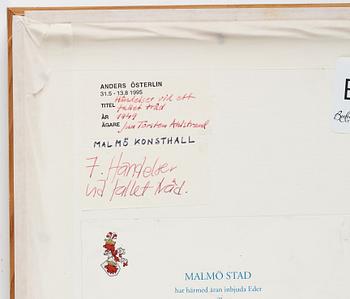 ANDERS ÖSTERLIN
31.5 - 13.8 1995
TITEL Händelser vid ett
fallet träd
ÅR 1949
ÄGARE Jan Torsten Ahlstrand
MALMÖ KONSTHALL
7. Händelser
vid fallet träd.
MALMÖ STAD
har härmed äran inbjuda Eder